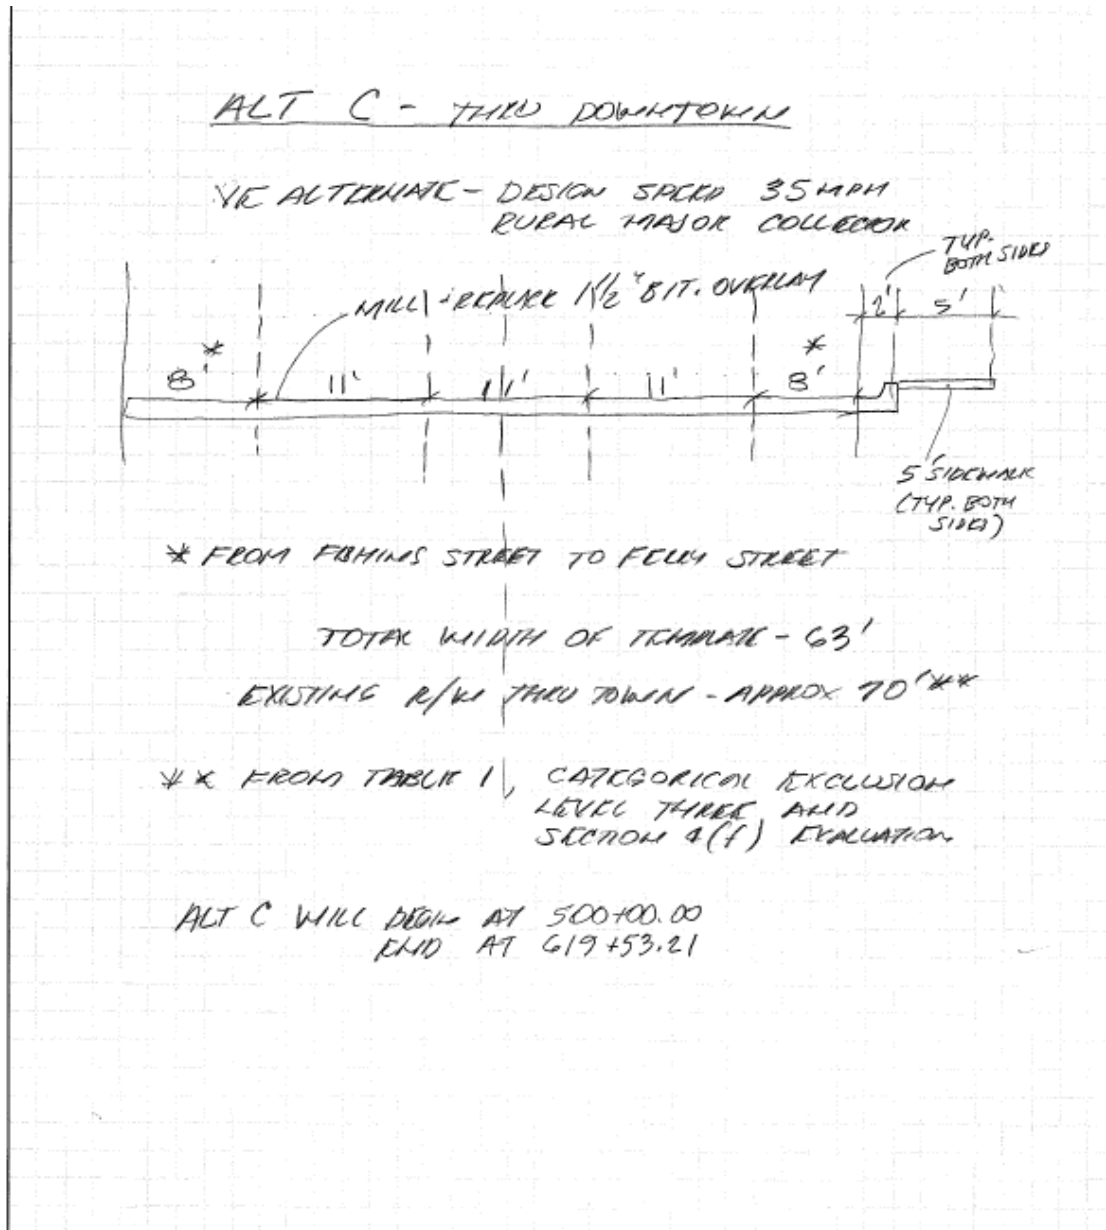 ALT C - THRU DOWNTOWN
VE ALTERNATE - DESIGN SPEED 35 MPH
RURAL MAJOR COLLECTOR
TYP.
BOTH SIDES
MILL + REPLACE 1 1/2" BIT. OVERLAY
2' 5'
* *
8' 11' 11' 11' 8'
5' SIDEWALK
(TYP. BOTH
SIDES)
* FROM STREET TO STREET
TOTAL WIDTH OF TEMPLATE - 63'
EXISTING R/W THRU TOWN - APPROX 70' **
** FROM TABLE 1, CATEGORICAL EXCLUSION
LEVEL THREE AND
SECTION 4(f) EVALUATION
ALT C WILL BEGIN AT 500+00.00
END AT 619+53.21